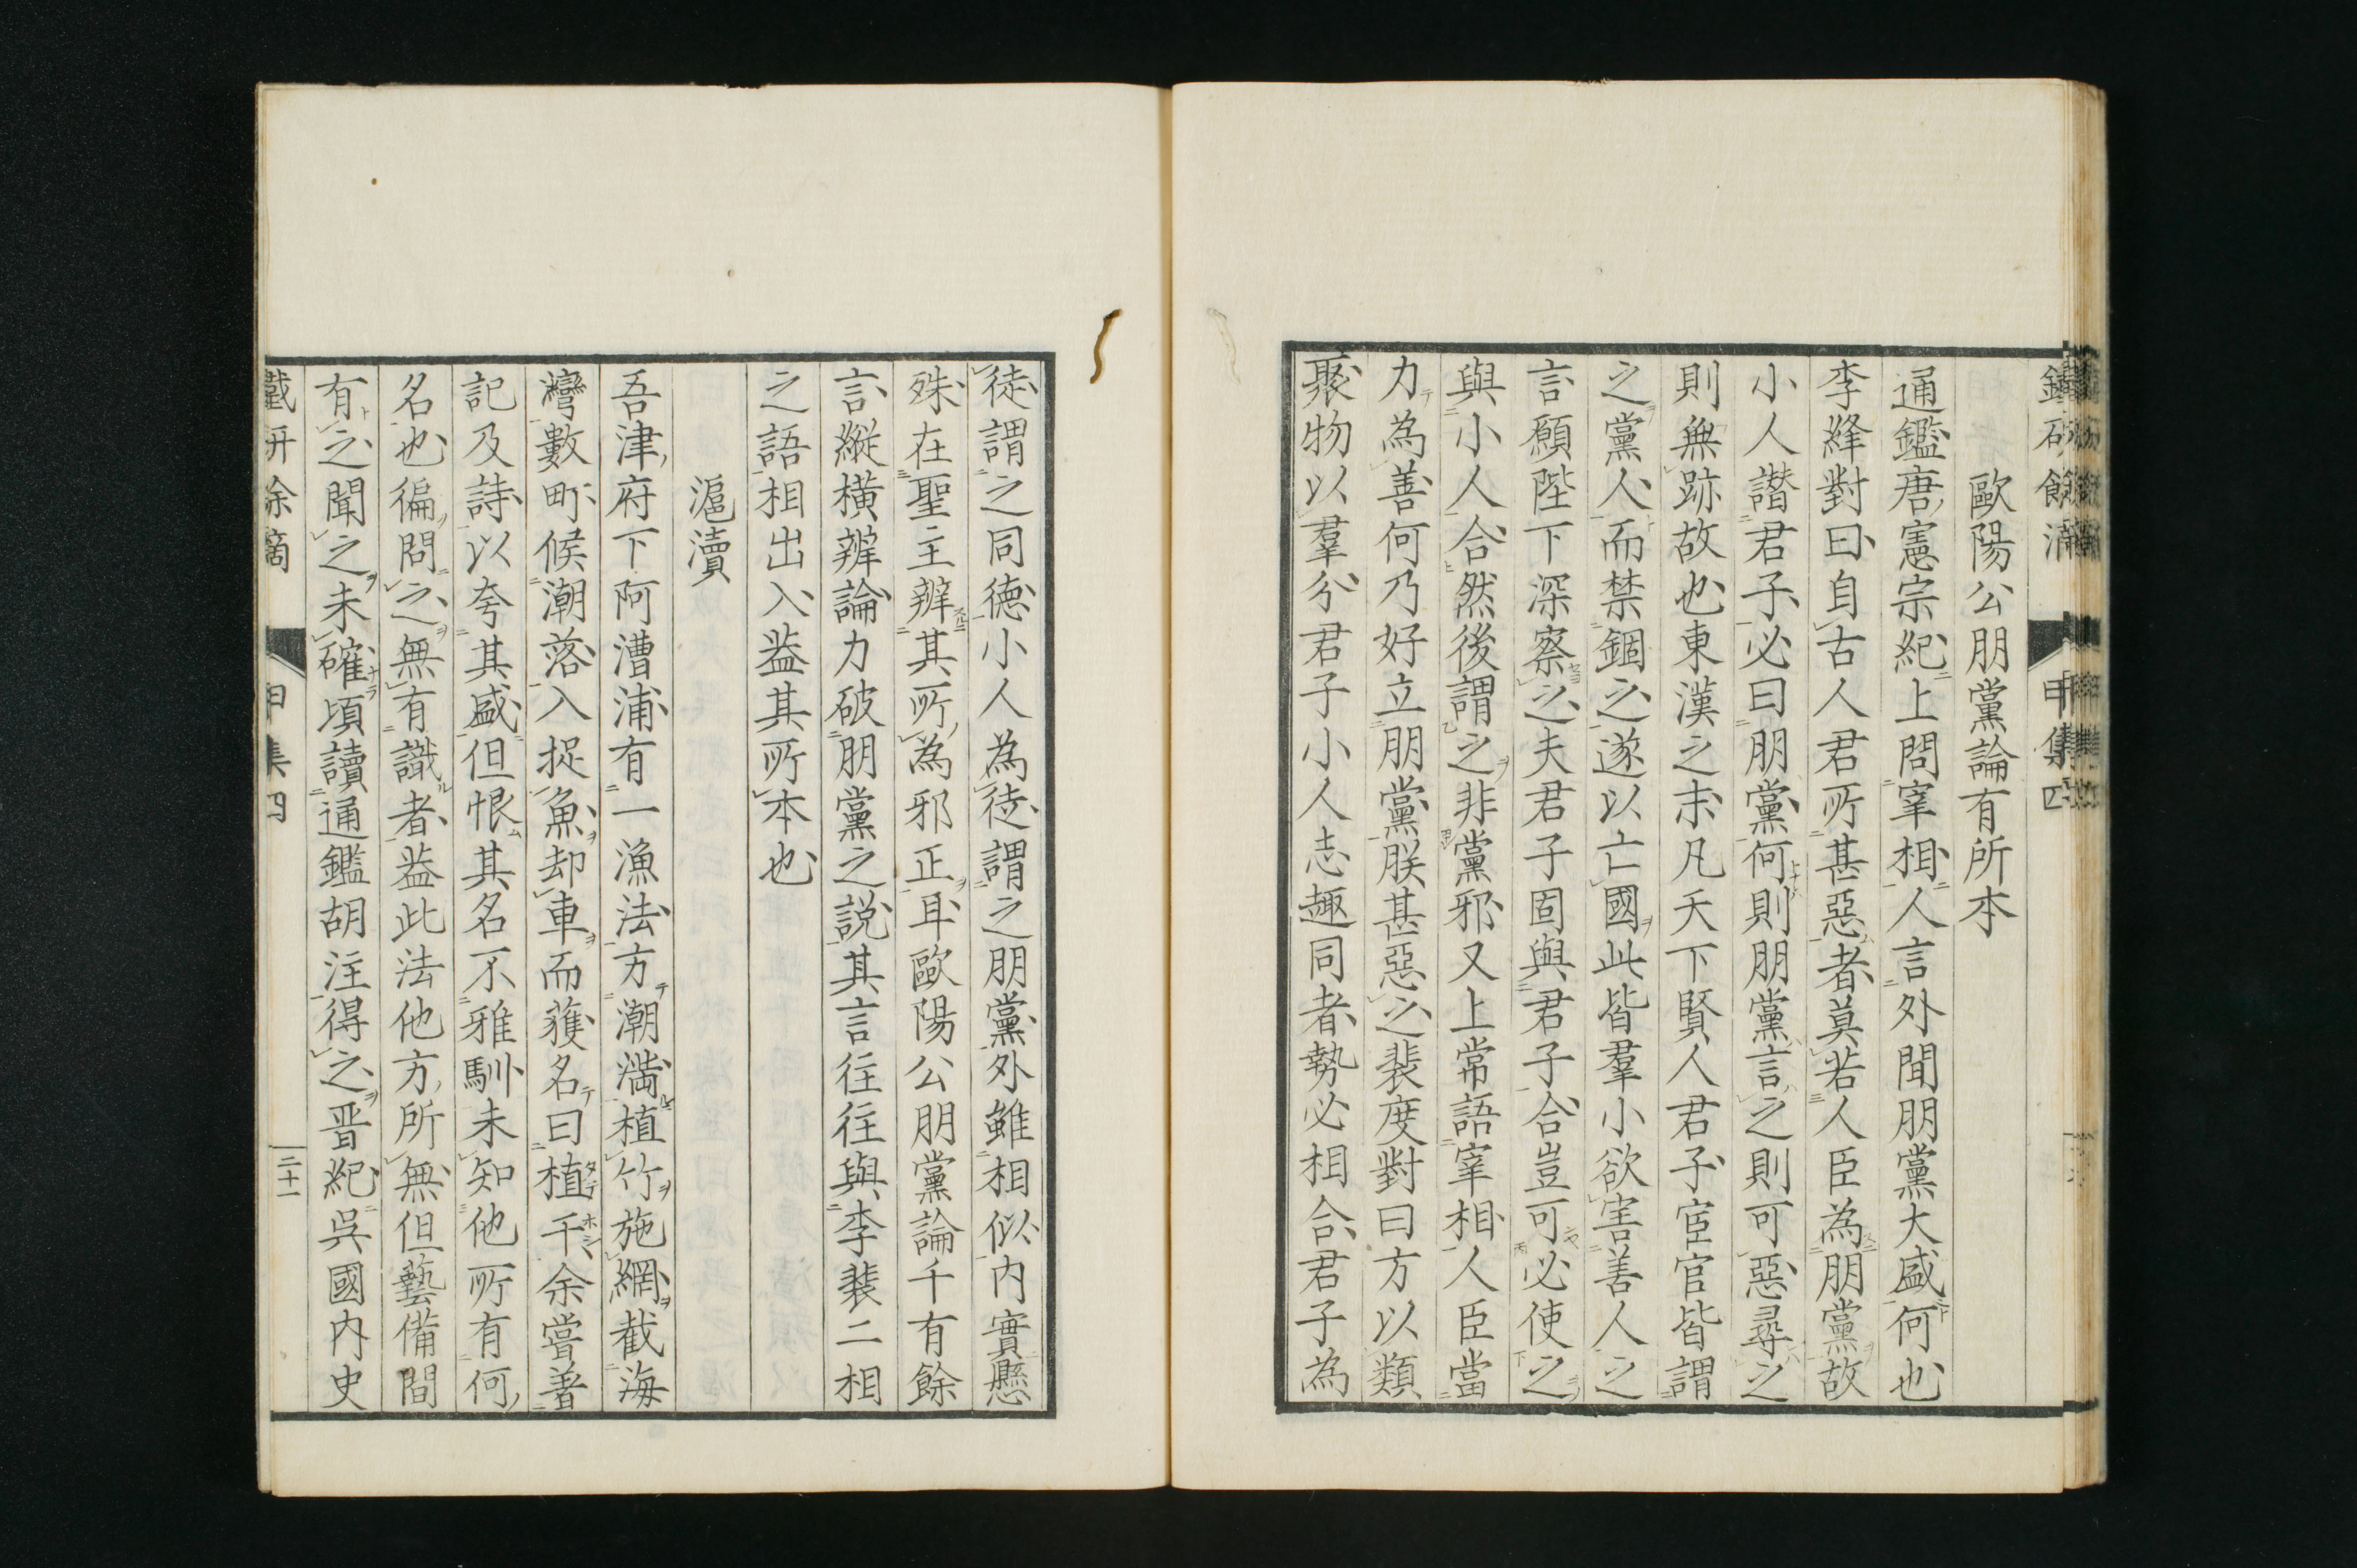 歐陽公朋黨論有所本
通鑑唐憲宗紀上問宰相人言外間朋黨大盛何也
李絳對曰自古人君所甚惡者莫若人臣為朋黨故
小人譖君子必曰朋黨何則朋黨言之則可惡尋之
則無跡故也東漢之末凡天下賢人君子宦官皆謂
之黨人而禁錮之遂以亡國此皆羣小欲害善人之
言願陛下深察之夫君子固與君子合豈可必使之
與小人合然後謂之非黨邪又上常語宰相人臣當
力為善何乃好立朋黨朕甚惡之裴度對曰方以類
聚物以羣分君子小人志趣同者勢必相合君子為
徒謂之同德小人為徒謂之朋黨外雖相似內實懸
殊在聖主辨其所為邪正耳歐陽公朋黨論千有餘
言縱橫辨論力破朋黨之説其言往往與李裴二相
之語相出入葢其所本也
滬瀆
吾津府下阿漕浦有一漁法方潮満植竹施網截海
灣數町候潮落入捉魚却車而獲名曰植干余嘗著
記及詩以夸其盛但恨其名不雅馴未知他所有何
名也徧問之無有識者葢此法他方所無但藝備間
有之聞之未確頃讀通鑑胡注得之晋紀吳國內史
甲集四
二十一